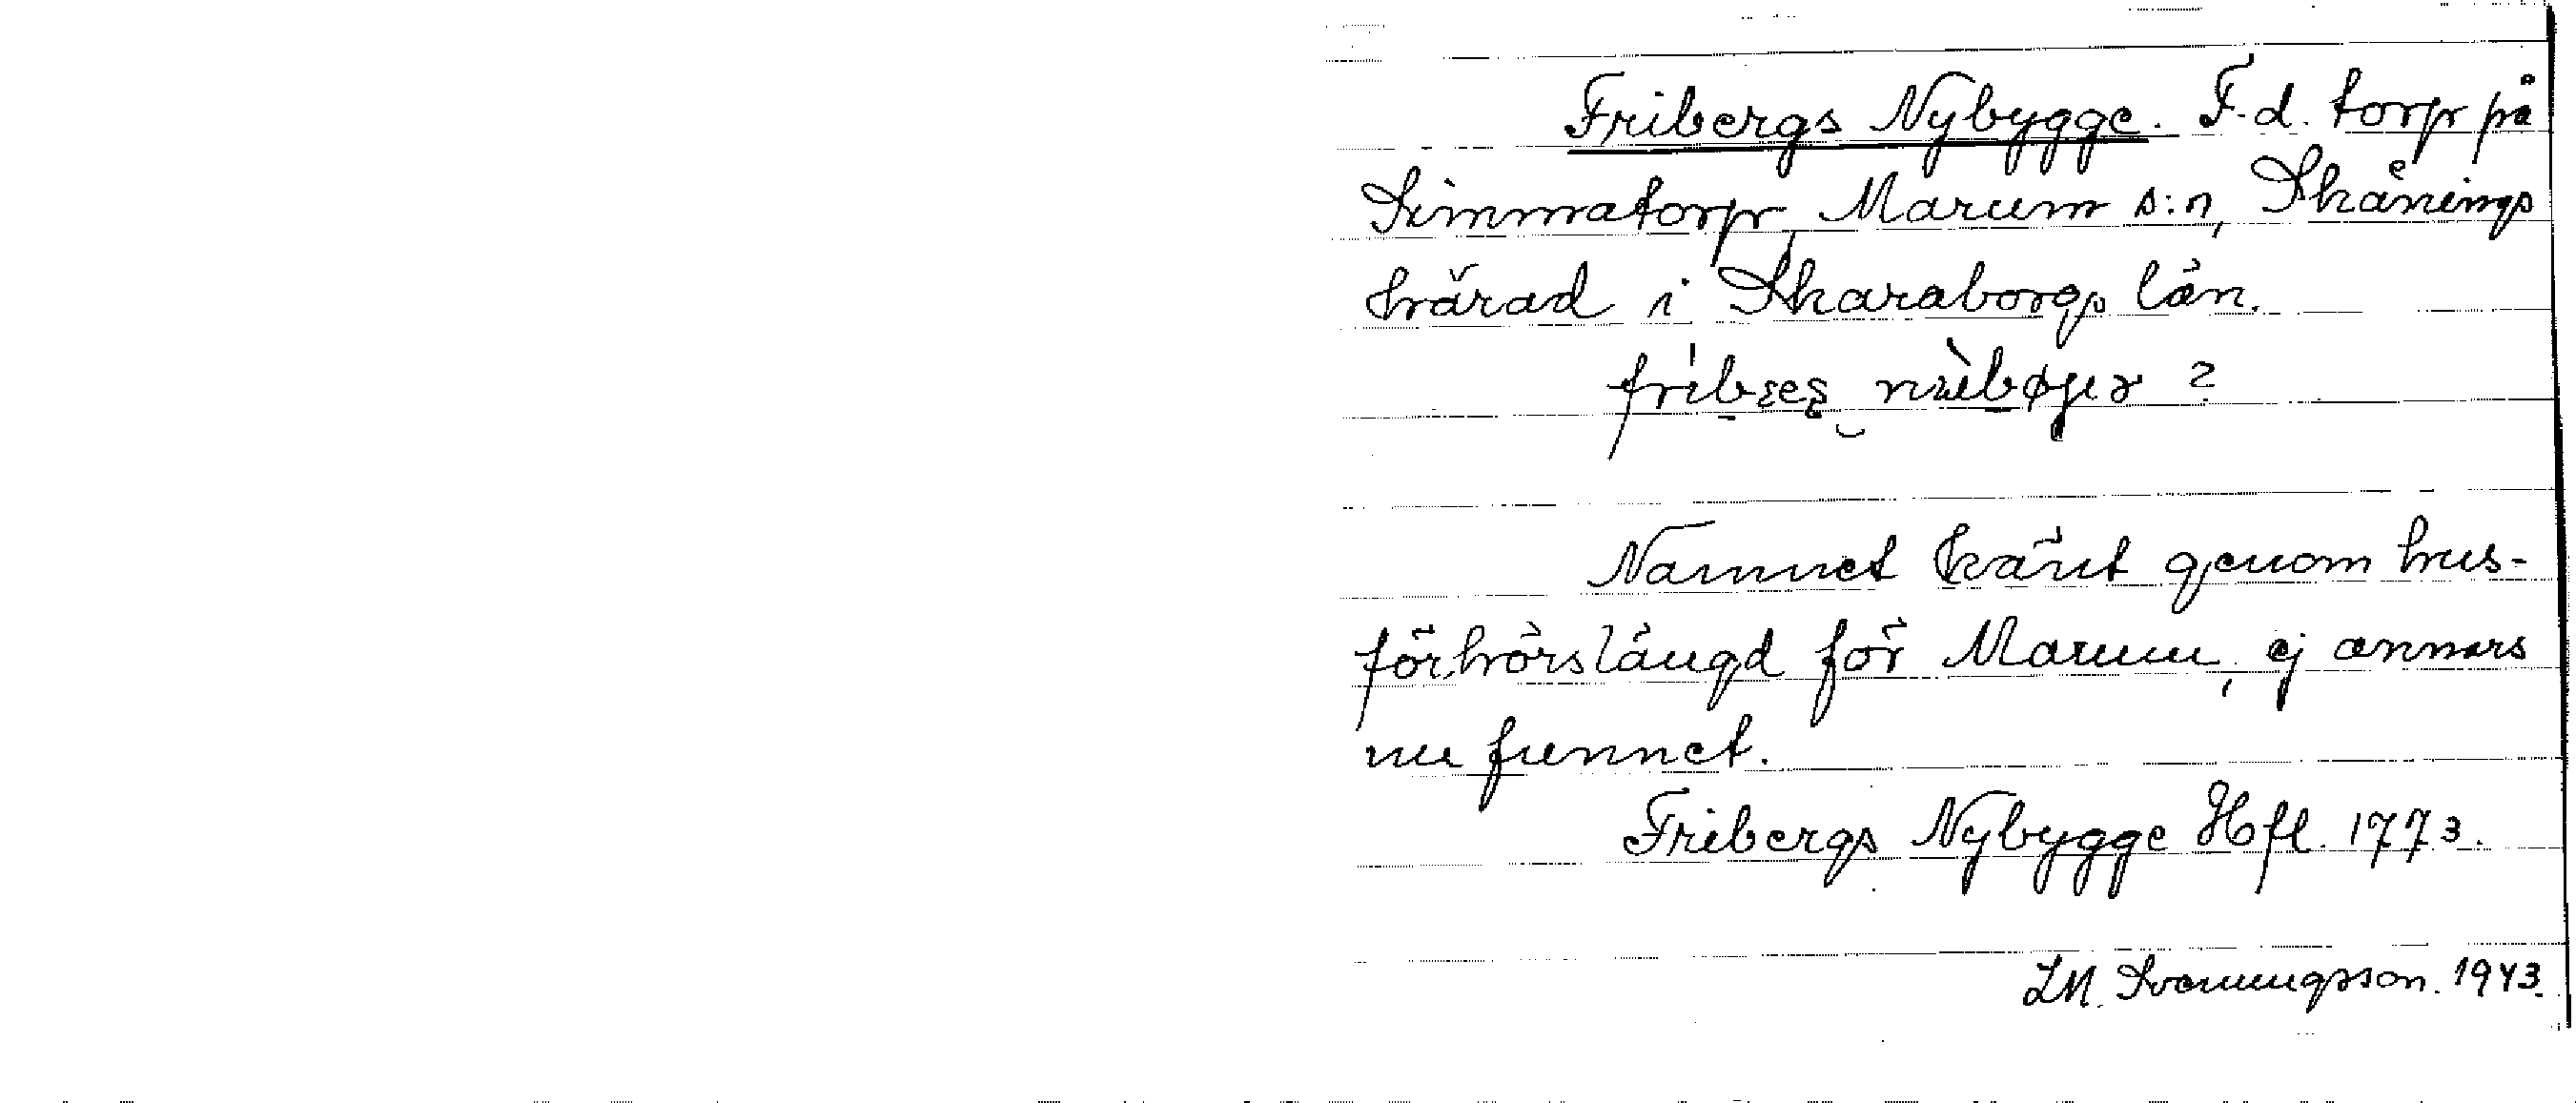 Fribergs Nybygge. F.d. torp på
Simmatorp, Marum s:n, Skånings
härad i Skaraborgs län.
Namnet känt genom hus-
förhörslängd för Marum, ej annars
nu funnet.
Fribergs Nybygge Hfl. 1773.
Svenungsson. 1943.